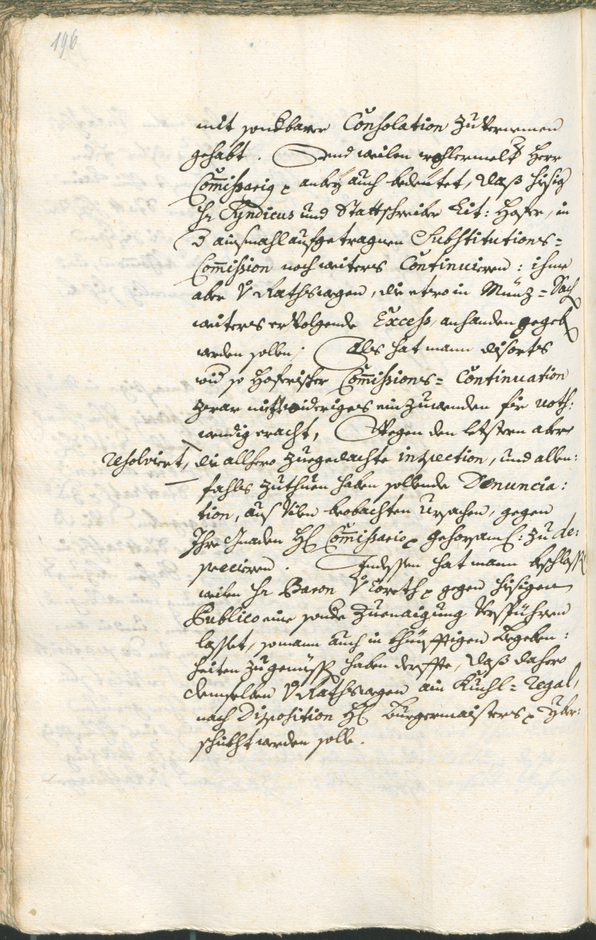 196
mit sonderbarer Consolation zuvernemen
gehabt. Und weilen wohlermelt Herr
Commissarius anbey auch bedeütet, daß hiesig
Hr Syndicus und Stattschreiber Lit: Hofer, in
aufgetragnen Substitutions=
Commission noch weiters Continuieren: ihme
aber V Rathswegen, die etwo in Münz=Sach
weiters ervolgende Excess, anhanden gegeben
werden sollen, Als hat mann diserts
wid so Hoferischer Commissions=Continuation
zwar nichts wideriges einzuwenden für noth:
wendig eracht, Wegen den letstern aber
resolviert, die allhero zuegedachte inspection, und allen:
fahls zuthuen haben sollende Denuncia:
tion, aus Vilen beobachten Ursachen, gegen
Ihre Gnaden H: Commissario gehorsamst: zu de:
preciren. Indessen hat mann beschlossen
weilen Hr Baron V Coreth gegen hiesigen
Publico eine sonder Zuenaigung Verspühren
lasset, so mann auch in khünfftigen Begeben:
heiten zugeniessen haben derffte, daß dahero
demselben V Rathswegen ain Kuchl=regal,
nach Disposition H: Burgermaisters yber:
schickht werden solle.